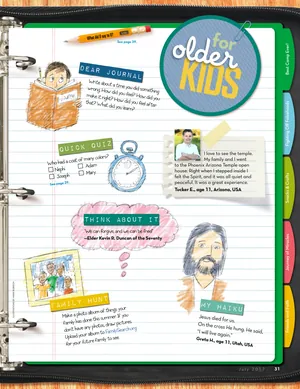 What did it say to?
See page 24.
for
older
KIDS
DEAR JOURNAL
Write about a time you did something
wrong. How did you feel? How did you
make it right? How did you feel after
that? What did you learn?
QUICK QUIZ
Who had a coat of many colors?
Nephi
Adam
Joseph
Mary
See page 24.
I love to see the temple.
My family and I went
to the Phoenix Arizona Temple open
house. Right when I stepped inside I
felt the Spirit, and it was all quiet and
peaceful. It was a great experience.
Tucker E., age 11, Arizona, USA
THINK ABOUT IT
"We can forgive, and we can be free!"
—Elder Kevin R. Duncan of the Seventy
FAMILY HUNT
Make a photo album of things your
family has done this summer. If you
don't have any photos, draw pictures.
Upload your album to FamilySearch.org
for your future family to see.
MY HAIKU
Jesus died for us.
On the cross He hung. He said,
"I will live again."
Greta H., age 11, Utah, USA
July 2017 31